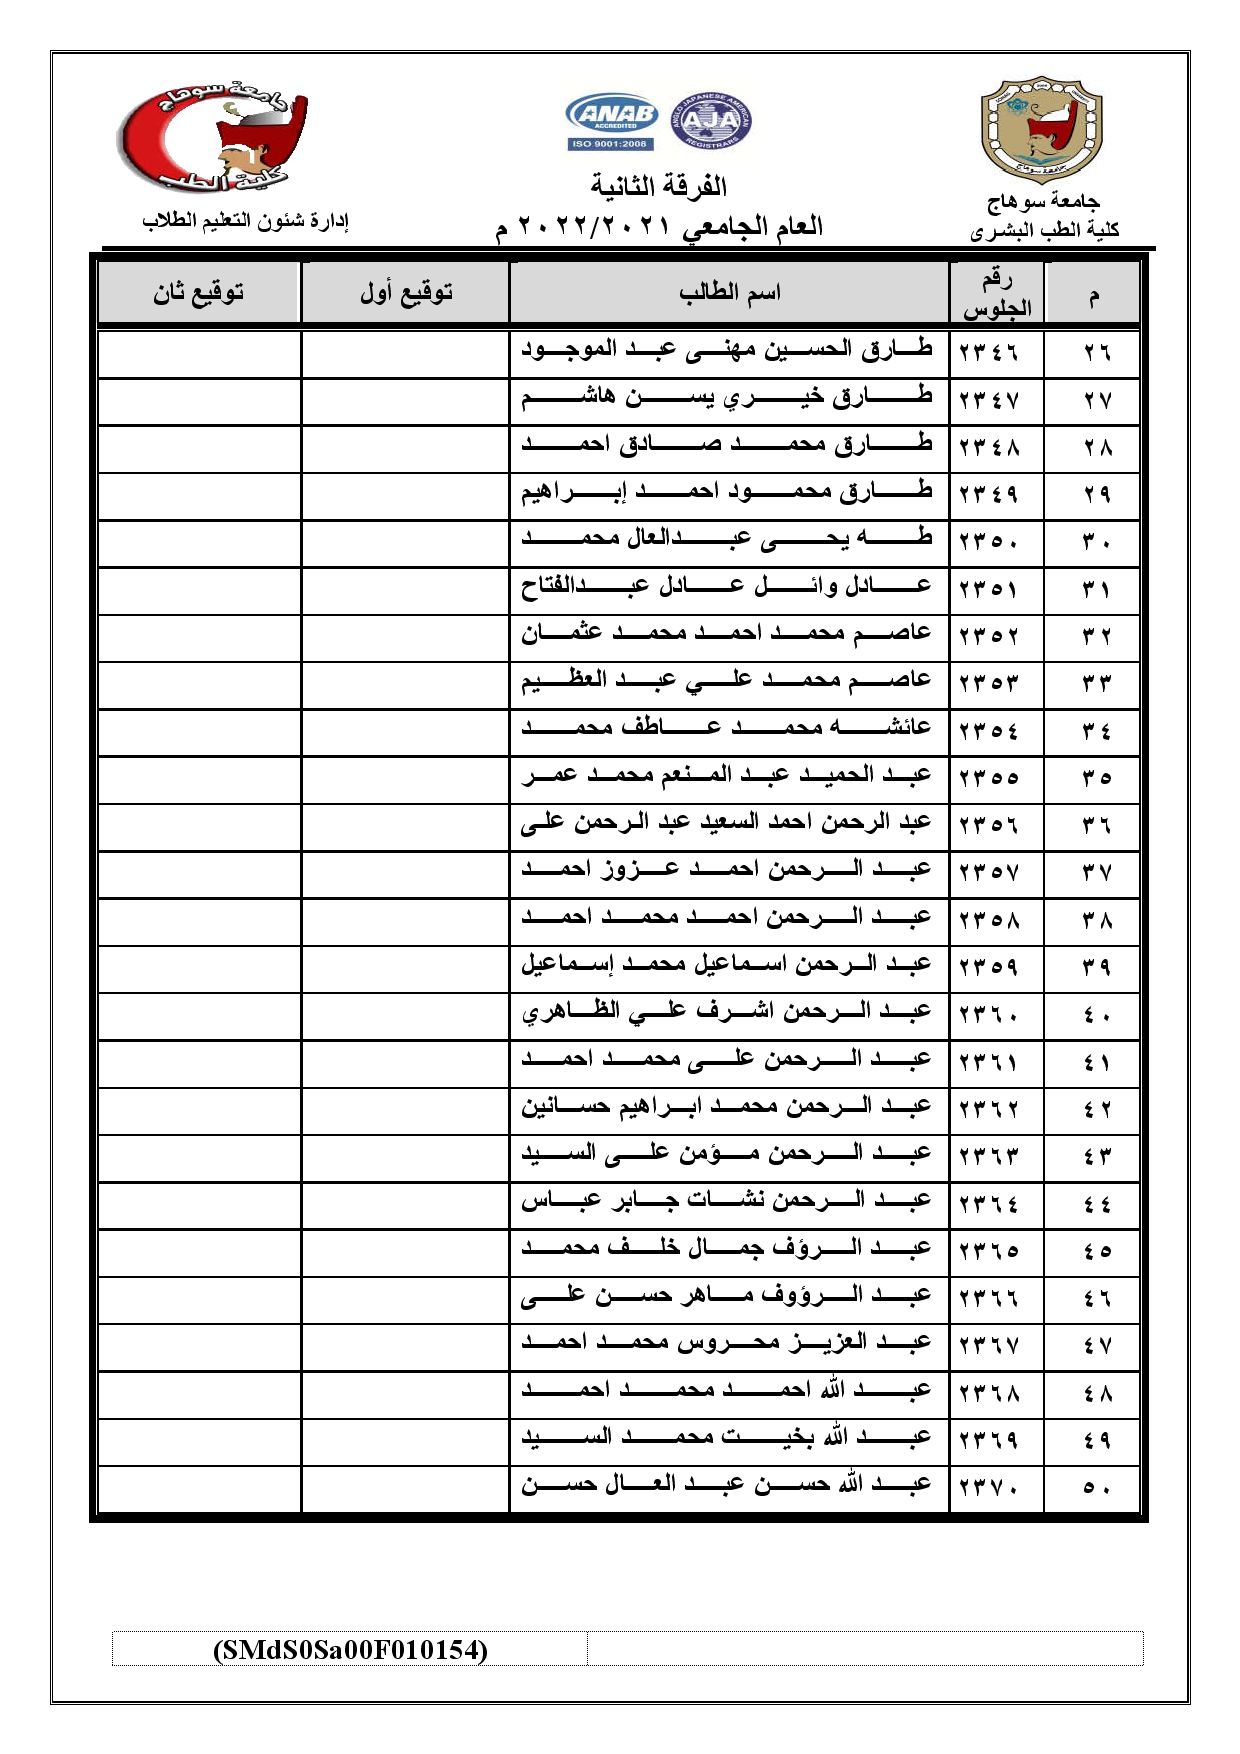 جامعة سوهاج
كلية الطب
ANAB
ACCREDITED
ISO 9001:2008
ANGLO JAPANESE AMERICAN
AJA
REGISTRARS
جامعة سوهاج
جامعة سوهاج
كلية الطب البشرى
الفرقة الثانية
العام الجامعي ٢٠٢٢/٢٠٢١ م
إدارة شئون التعليم الطلاب
م رقم الجلوس اسم الطالب توقيع أول توقيع ثان
٢٦ ٢٣٤٦ طارق الحسين مهنى عبد الموجود
٢٧ ٢٣٤٧ طارق خيري يسن هاشم
٢٨ ٢٣٤٨ طارق محمد صادق احمد
٢٩ ٢٣٤٩ طارق محمود احمد إبراهيم
٣٠ ٢٣٥٠ طه يحى عبدالعال محمد
٣١ ٢٣٥١ عادل وائل عادل عبدالفتاح
٣٢ ٢٣٥٢ عاصم محمد احمد محمد عثمان
٣٣ ٢٣٥٣ عاصم محمد علي عبد العظيم
٣٤ ٢٣٥٤ عائشه محمد عاطف محمد
٣٥ ٢٣٥٥ عبد الحميد عبد المنعم محمد عمر
٣٦ ٢٣٥٦ عبد الرحمن احمد السعيد عبد الرحمن على
٣٧ ٢٣٥٧ عبد الرحمن احمد عزوز احمد
٣٨ ٢٣٥٨ عبد الرحمن احمد محمد احمد
٣٩ ٢٣٥٩ عبد الرحمن اسماعيل محمد إسماعيل
٤٠ ٢٣٦٠ عبد الرحمن اشرف علي الظاهري
٤١ ٢٣٦١ عبد الرحمن على محمد احمد
٤٢ ٢٣٦٢ عبد الرحمن محمد ابراهيم حسانين
٤٣ ٢٣٦٣ عبد الرحمن مؤمن على السيد
٤٤ ٢٣٦٤ عبد الرحمن نشات جابر عباس
٤٥ ٢٣٦٥ عبد الرؤف جمال خلف محمد
٤٦ ٢٣٦٦ عبد الرؤوف ماهر حسن على
٤٧ ٢٣٦٧ عبد العزيز محروس محمد احمد
٤٨ ٢٣٦٨ عبد الله احمد محمد احمد
٤٩ ٢٣٦٩ عبد الله بخيت محمد السيد
٥٠ ٢٣٧٠ عبد الله حسن عبد العال حسن
(SMdS0Sa00F010154)